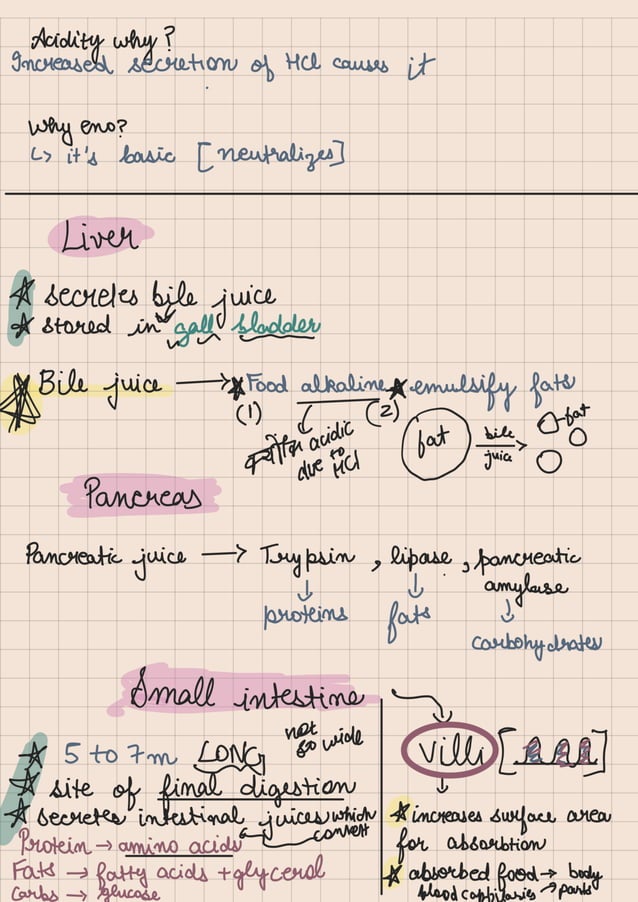 Acidity why?
Increased secretion of HCl causes it
Why eno?
↳ it's basic [neutralizes]
Liver
☆ secretes bile juice
☆ stored in gall bladder
Bile juice → ★ Food alkaline ★ emulsify fats
(1) (2)
acidic
due to
HCl
fat bile juice → fat
Pancreas
Pancreatic juice → Trypsin, lipase, pancreatic
amylase
↓ proteins ↓ fats ↓ carbohydrates
Small intestine
☆ 5 to 7m LONG not so wide
☆ site of final digestion
☆ secretes intestinal juices which
convert
Protein → amino acids
Fats → fatty acids + glycerol
Carbs → glucose
villi
☆ increases surface area
for absorbtion
☆ absorbed food → body
blood cappilaries → parts